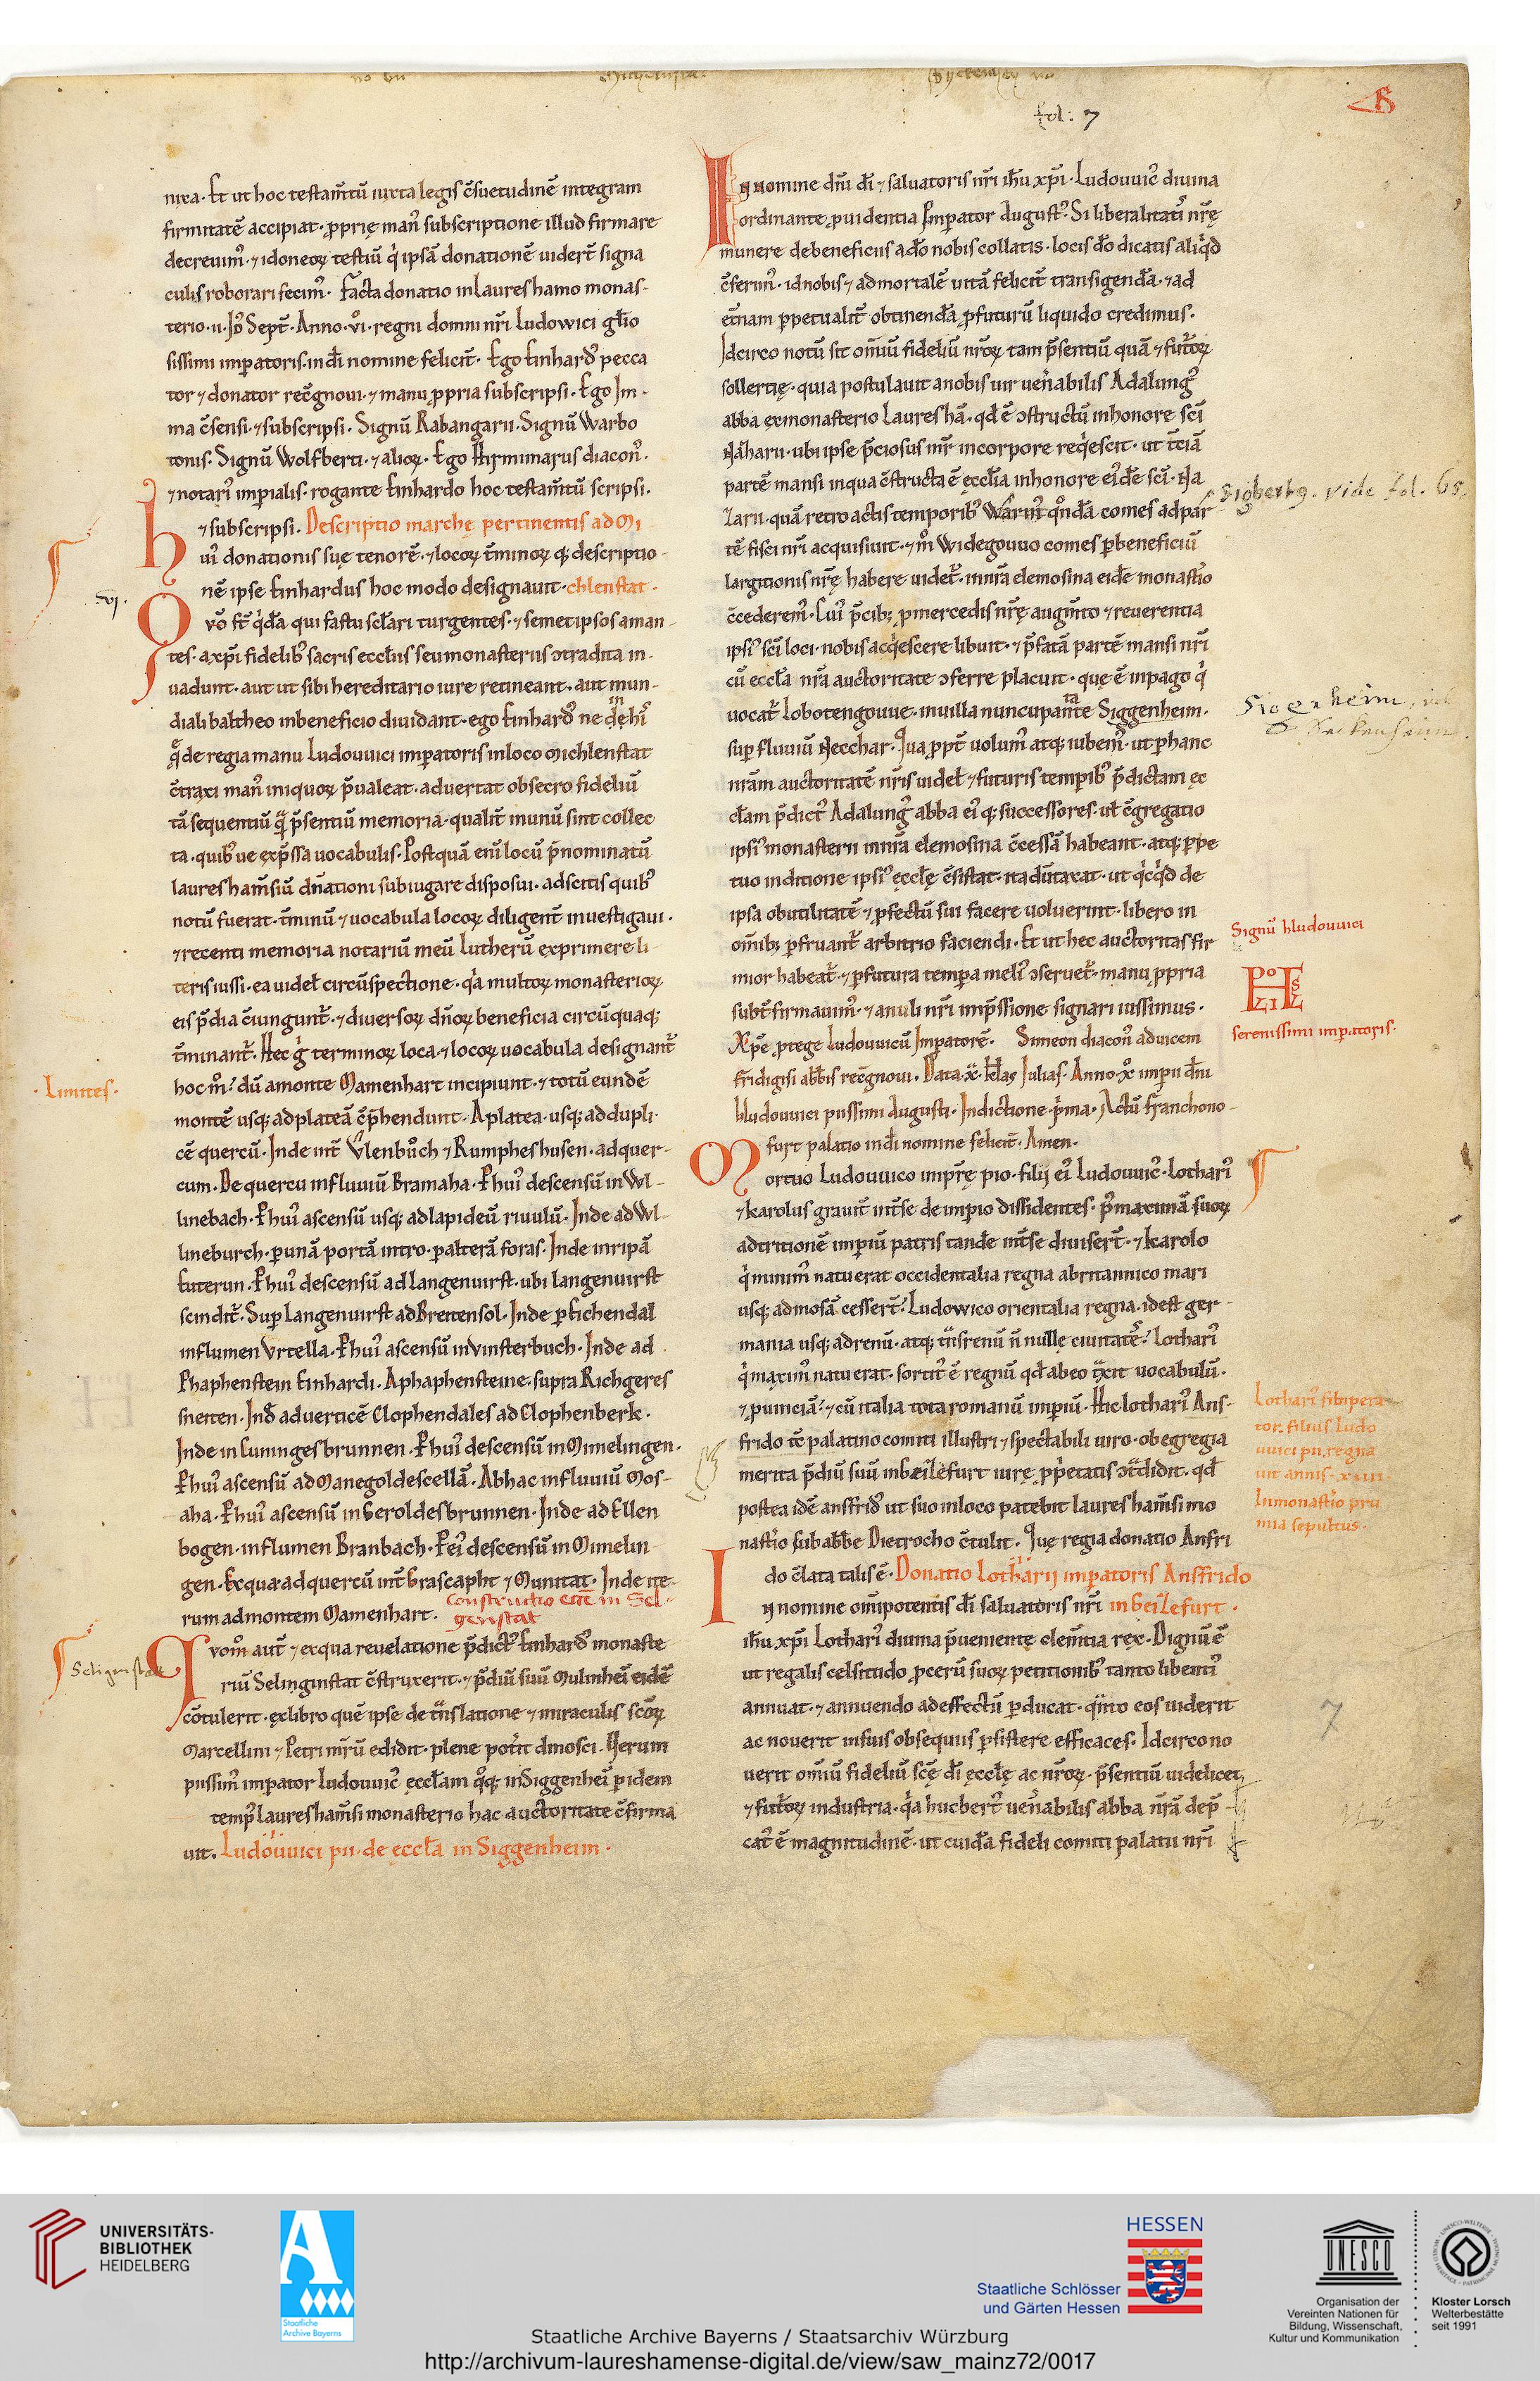 fol: 7
nixa. Et ut hoc testam̄tū iuxta legis c̄suetudinē integram
firmitatē accipiat. ꝓprię man᷒ subscriptione illud firmare
decreuim᷒. ⁊ idoneoꝝ testiū q̇ ipsā donationē uider̄t signa
culis roborari fecim᷒. Facta donatio in Laureshamo monas-
terio. ii. Id᷒ Sept̄. Anno. vi. regni domni nr̄i Ludowici gl̄io
sissimi imꝑatoris. in dī nomine felicit̄. Ego Einhard᷒ pecca
tor ⁊ donator rec̄gnoui. ⁊ manu ꝓpria subscripsi. Ego Im-
ma c̄sensi. ⁊ subscripsi. Signū Rabangarii. Signū Warbo
tonis. Signū Wolfberti. ⁊ alioꝝ. Ego Hirminmarus diacon᷒.
⁊ notari᷒ imꝑialis. rogante Einhardo hoc testam̄tū scripsi.
⁊ subscripsi. Descriptio marchę pertinentis ad Mi
hui᷒ donationis suę tenorē. ⁊ locoꝝ t̄minoꝝ q; descriptio-
nē ipse Einhardus hoc modo designauit. chlenstat.
.vi.
Qvō st̄ q̇dā qui fastu scl̄ari turgentes. ⁊ semetipsos aman-
tes. a xp̄i fidelib᷒ sacris eccl̄iis seu monasteriis ↄtradita in-
uadunt. aut ut sibi hereditario iure retineant. aut mun-
diali baltheo in beneficio diuidant. ego Einhard᷒ ne de his
in
quę de regia manu Ludouuici imꝑatoris in loco Michlenstat
c̄traxi man᷒ iniquoꝝ p̄ualeat. aduertat obsecro fideliū
tā sequentiū quā p̄sentiū memoria. qualit̄ in unū sint collec
ta. quib᷒ue exp̄ssa uocabulis. Postquā eni᷒ locū p̄nominatū
laureshām̄siū dn̄ationi subiugare disposui. adscitis quib᷒
notū fuerat. t̄minū ⁊ uocabula locoꝝ diligent̄ inuestigaui.
⁊ recenti memoria notariū meū Lutherū exprimere li
teris iussi. ea uidel̄ circūspectione. q̇a multoꝝ monasterioꝝ
eis p̄dia c̄iungunt᷒. ⁊ diuersoꝝ dn̄oꝝ beneficia circūquaq;
t̄minant᷒. Hec ġ terminoꝝ loca. ⁊ locoꝝ uocabula designant᷒
.Limites.
hoc m̊. dū a monte Mamenhart incipiunt. ⁊ totū eundē
montē usq; ad plateā c̄p̄hendunt. A platea. usq; ad dupli-
cē quercū. Inde int̄ Vlenbůch ⁊ Rumpheshusen. ad quer-
cum. De quercu in fluuiū Bramaha. P hui᷒ descensū in Wl-
linebach. P hui᷒ ascensū usq; ad lapideū riuulū. Inde ad Wl-
lineburch. ꝑ unā portā intro. ꝑ alterā foras. Inde in ripā
Euterun. P hui᷒ descensū ad Langenuirst. ubi langenuirst
scindit᷒. Suꝑ Langenuirst ad Breitensol. Inde ꝑ Eichendal
in flumen Vrtella. P hui᷒ ascensū in Vinsterbuch. Inde ad
Phaphenstein Einhardi. A phaphensteine. supra Richgeres
sneiten. Inde ad uerticē Clophendales ad Clophenberk.
Inde in Cuningesbrunnen. P hui᷒ descensū in Mimelingen.
P hui᷒ ascensū ad Manegoldescellā. Ab hac in fluuiū Mos-
aha. P hui᷒ ascensū in Geroldesbrunnen. Inde ad Ellen
bogen. in flumen Branbach. P ei᷒ descensū in Mimelin
gen. Ex qua ad quercū int̄ Grascapht ⁊ Munitat. Inde ite-
rum ad montem Mamenhart. Constructio ecc̄ in Sel-
genstat
Seligenstat
Qvom̊ aut̄ ⁊ ex qua reuelatione p̄dict᷒ Einhard᷒ monaste
riū Selinginstat c̄struxerit. ⁊ p̄diū suū Mulinhei᷒ eidē
c̄tulerit. ex libro quē ipse de trāslatione ⁊ miraculis sc̄oꝝ
Marcellini ⁊ Petri mr̄ū edidit. plene pot̄it dinosci. Uerum
piissim᷒ imꝑator Ludouuic᷒ eccl̄am quoq; in Siggenhei᷒ ꝑ idem
temp᷒ laureshām̄si monasterio hac auctoritate c̄firma
uit. Ludouuici pii. de ęccl̄a in Siggenheim.
In nomine dn̄i dī ⁊ saluatoris nr̄i ihū xp̄i. Ludouuic᷒ diuina
ordinante ꝓuidentia Imperator August᷒. Si liberalitatis nr̄ę
munere de beneficiis a dō nobis collatis. locis dō dicatis aliq̇d
c̄ferim᷒. id nobis ⁊ ad mortalē uitā felicit̄ transigendā. ⁊ ad
et̄nam ꝑpetualit̄ obtinendā ꝓfuturū liquido credimus.
Idcirco notū sit om̄iū fideliū nr̄oꝝ tam p̄sentiū quā ⁊ futr̄oꝝ
sollertię. quia postulauit a nobis uir uen̄abilis Adalung᷒
abba ex monasterio Lauresħā. qd̄ ē ↄstructū in honore sc̄i
Nazharii. ubi ipse p̄ciosus mr̄ in corpore req̇escit. ut t̄ciā
partē mansi in qua c̄structa ē ęccl̄ia in honore ei᷒dē sc̄i. Na
zarii. quā retroactis temporib᷒ Warin᷒ quondā comes ad par
Sigbertg. vide fol. 65
tē fisci nr̄i acquisiuit. ⁊ m̊ Widegouuo comes ꝑ beneficiū
largitionis nr̄ę habere uidet᷒. in nr̄a elemosina eidē monast̄io
c̄cederem᷒. Cui᷒ p̄cib; ꝓ mercedis nr̄ę augm̄to ⁊ reuerentia
ipsi᷒ sc̄i loci. nobis acq̇escere libuit. ⁊ p̄fatā partē mansi nr̄i
cū eccl̄a nr̄a auctoritate ↄferre placuit. quę ē in pago q̇
uocat᷒ Lobotengouue. in uilla nuncupante Siggenheim.
ta
Sigenheim, vel
Seckenheim.
suꝑ fluuiū Necchar. Qua ꝓpt̄ uolum᷒ atq; iubem᷒. ut ꝑ hanc
nr̄am auctoritatē nr̄is uidel̄ ⁊ futuris temꝑib᷒ p̄dictam ęc
cl̄am p̄dict᷒ Adalung᷒ abba ei᷒q; successores. ut c̄gregatio
ipsi᷒ monasterii in nr̄a elemosina c̄cessā habeant. atq; ꝑpe
tuo in ditione ipsi᷒ ęccl̄ę c̄sistat. ita dūtaxat. ut q̇cq̇d de
ipsa ob utilitatē ⁊ ꝓfectū sui facere uoluerint. libero in
om̄ib; ꝑfruant᷒ arbitrio faciendi. Et ut hec auctoritas fir
mior habeat᷒. ⁊ ꝑ futura temꝑa meli᷒ ↄseruet᷒. manu ꝓpria
subt̄ firmauim᷒. ⁊ anuli nr̄i imp̄ssione signari iussimus.
Signū hludouuici
serenissimi imperatoris.
Xp̄e ꝓtege Ludouuicū Imperatorē. Simeon diacon᷒ ad uicem
fridigisi abb̄is rec̄gnoui. Data. x̄. kl̄as Julias. Anno. x̊. imꝑii dn̄i
hludouuici piissimi Augusti. Indictione. ṗma. Actū franchono-
furt palatio in dī nomine felicit̄. Amen.
Mortuo Ludouuico impr̄ę pio. filij ei᷒ Ludouuic᷒. Lothari᷒
⁊ karolus grauit̄ int̄ se de imꝑio dissidentes. p᷒ maximā suoꝝ
adtritionē imꝑiū patris tandē int̄ se diuiser̄t. ⁊ karolo
q̇ minim᷒ natu erat occidentalia regna a britannico mari
usq; ad mosā cesser̄t. Ludowico orientalia regna. id est ger-
mania usq; ad renū. atq; trās renū n̄ nullę ciuitates. Lothari᷒
q̇ maxim᷒ natu erat. sortit᷒ ē regnū qd̄ ab eo traxit uocabulū.
⁊ ꝓuinciā. ⁊ cū italia tota romanū imꝑiū. Hic lothari᷒ Ans-
Lothari᷒ sib imꝑera
tor. filius Ludo
uuici pii. regna
uit annis. xuii.
In monast̄io pru
mia sepultus.
frido tc̄ palatino comiti illustri ⁊ spectabili uiro. ob egregia
merita p̄diū suū in beilefurt iurę ꝓp̄etatis ↄtradidit. qd̄
postea idē ansfrid᷒ ut suo in loco patebit laureshām̄si mo
nast̄io sub abb̄e Dietrocho c̄tulit. Quę regia donatio Anfri
do c̄lata talis ē. Donatio Lotharij imperatoris Ansfrido
In nomine om̄ipotentis dī saluatoris nr̄i in beilefurt.
ihū xp̄i Lothari᷒ diuina p̄ueniente clem̄tia rex. Dignū ē
ut regalis celsitudo ꝓcerū suoꝝ petitionib᷒ tanto libenti᷒
annuat. ⁊ annuendo ad effectū ꝑducat. quanto eos uiderit
ac nouerit in suis obsequiis ꝑsistere efficaces. Idcirco no
uerit om̄iū fideliū sc̄ę dī eccl̄ę ac nr̄oꝝ. p̄sentiū uidelicet
⁊ futr̄oꝝ industria. q̇a hucbert᷒ uen̄abilis abba nr̄ā dep̄
cat᷒ ē magnitudinē. ut cuidā fideli comiti palatii nr̄i
7
UNIVERSITÄTS-
BIBLIOTHEK
HEIDELBERG
Staatliche
Archive Bayerns
HESSEN
Staatliche Schlösser
und Gärten Hessen
UNESCO
Organisation der
Vereinten Nationen für
Bildung, Wissenschaft,
Kultur und Kommunikation
Kloster Lorsch
Welterbestätte
seit 1991
Staatliche Archive Bayerns / Staatsarchiv Würzburg
http://archivum-laureshamense-digital.de/view/saw_mainz72/0017